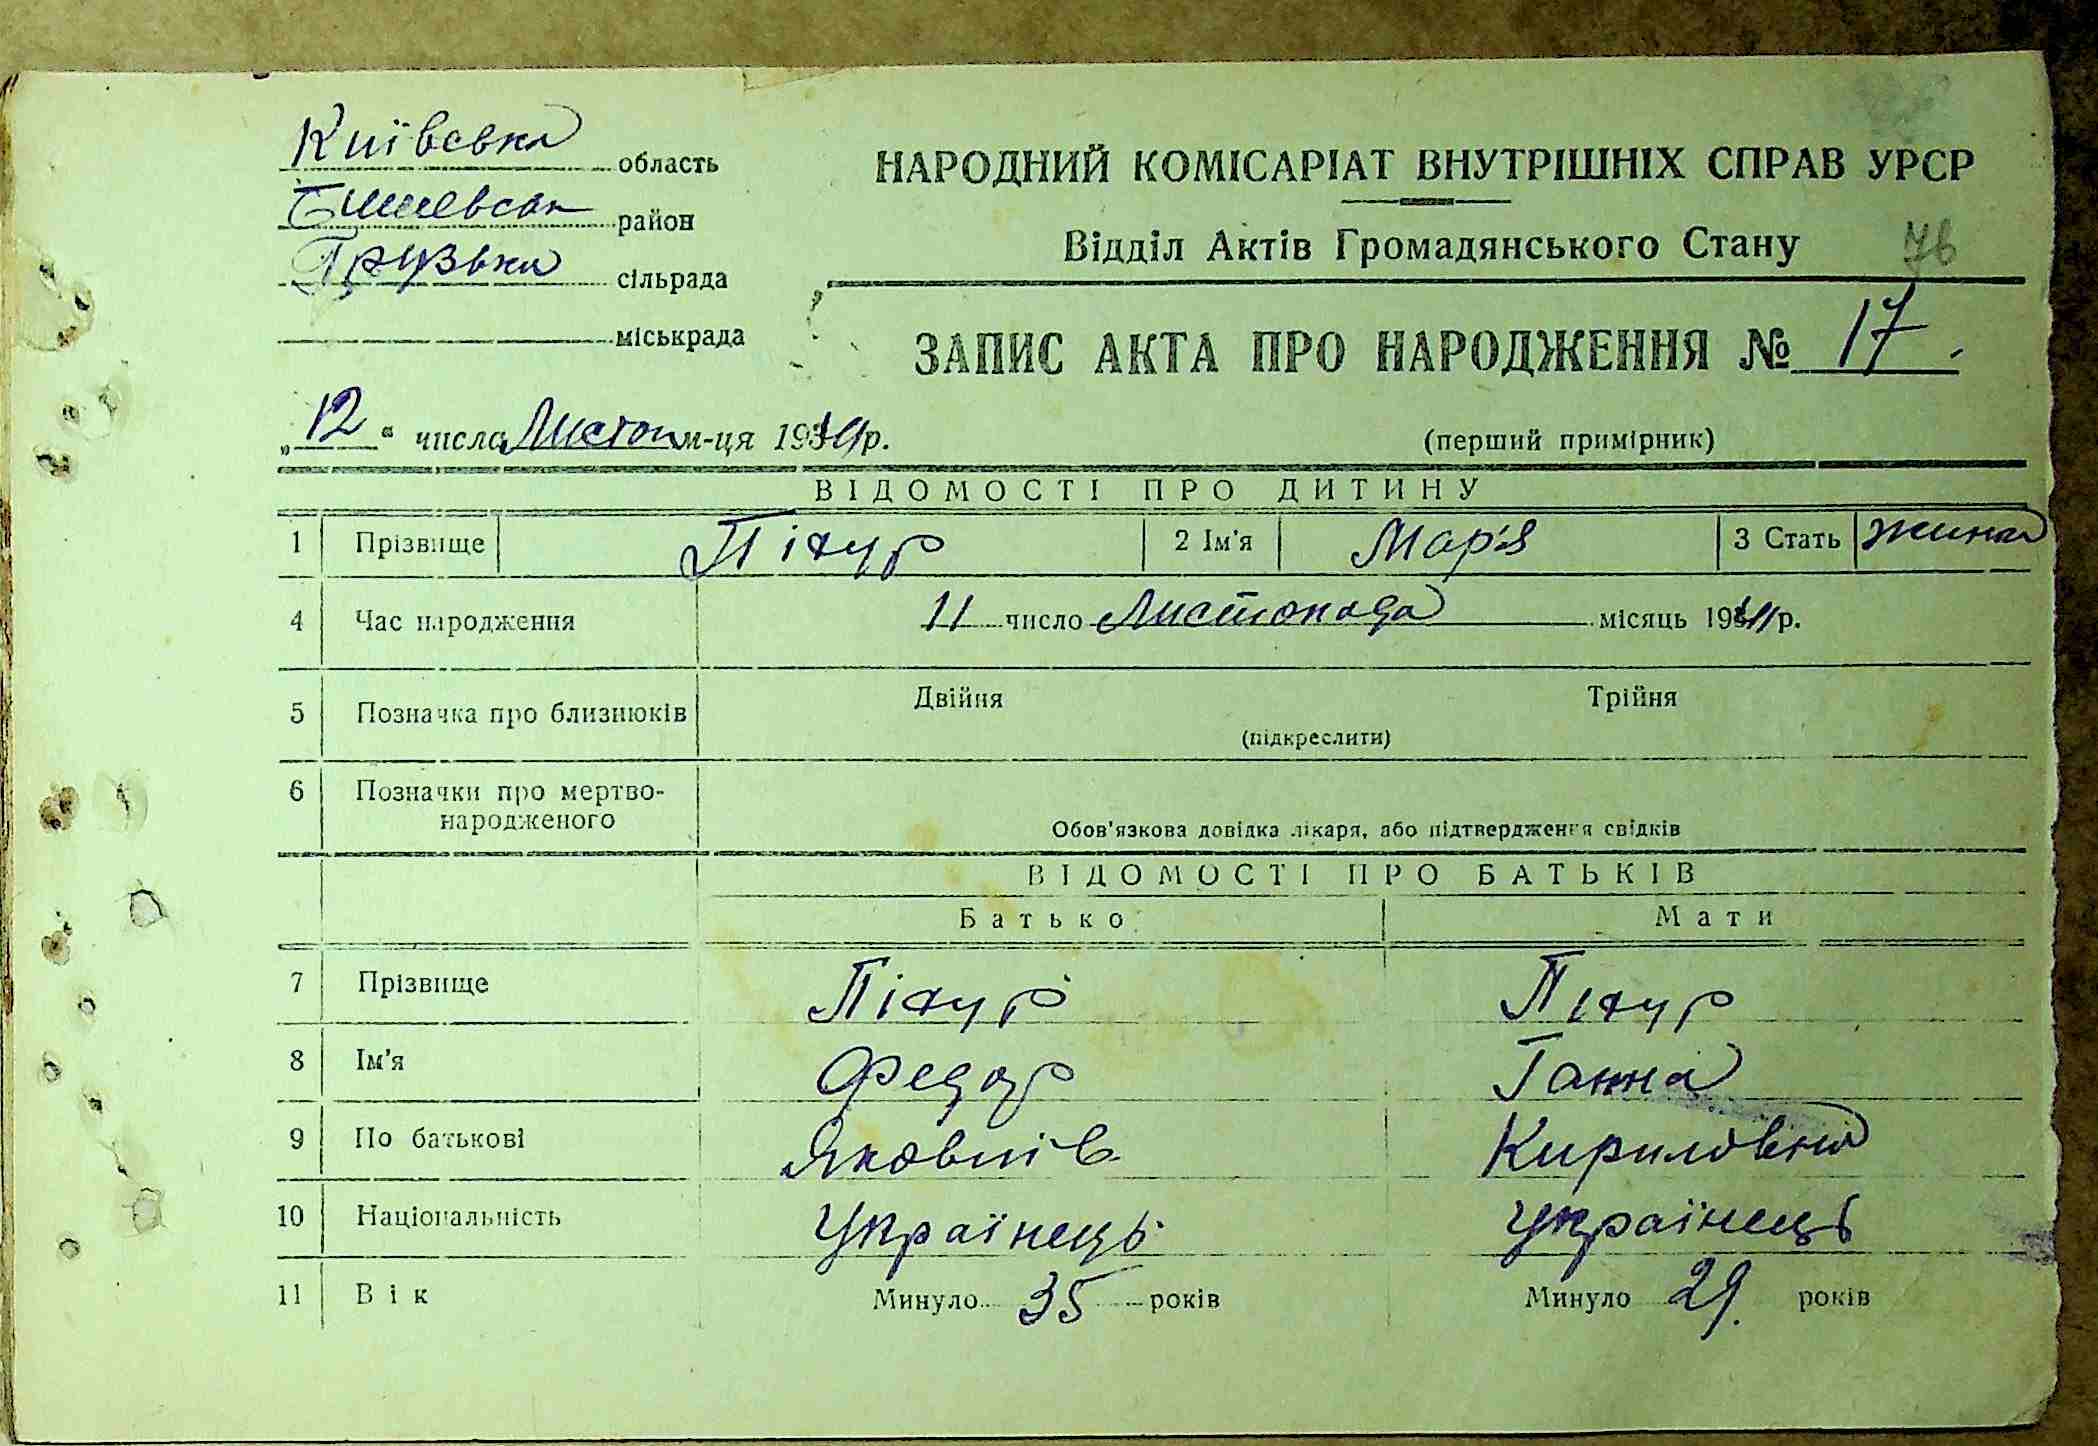 Київська область
Бишевськ район
Грузька сільрада
міськрада
НАРОДНИЙ КОМІСАРІАТ ВНУТРІШНІХ СПРАВ УРСР
Відділ Актів Громадянського Стану
76
ЗАПИС АКТА ПРО НАРОДЖЕННЯ № 17.
„12“ числа Листоп м-ця 1941р.
(перший примірник)
ВІДОМОСТІ ПРО ДИТИНУ
1 Прізвище Пікур 2 Ім'я Мар'я 3 Стать
4 Час народження 11 число Листопада місяць 1941р.
5 Позначка про близнюків Двійня Трійня
(підкреслити)
6 Позначки про мертво-
народженого
Обов'язкова довідка лікаря, або підтвердження свідків
ВІДОМОСТІ ПРО БАТЬКІВ
Батько Мати
7 Прізвище Пікур Пікур
8 Ім'я Федор Ганна
9 По батькові Яковлів Кириловна
10 Національність Українець Українець
11 Вік Минуло 35 років Минуло 29. років